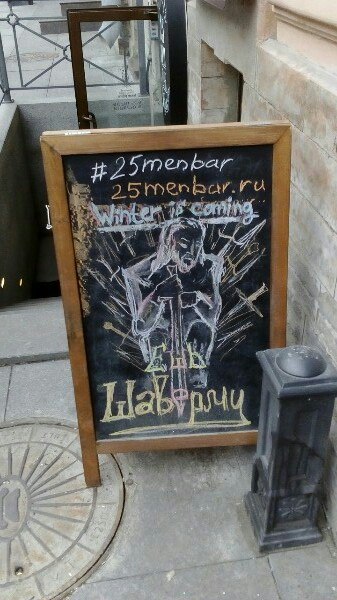 #25menbar
25menbar.ru
Winter is coming
Ешь
Шаверму